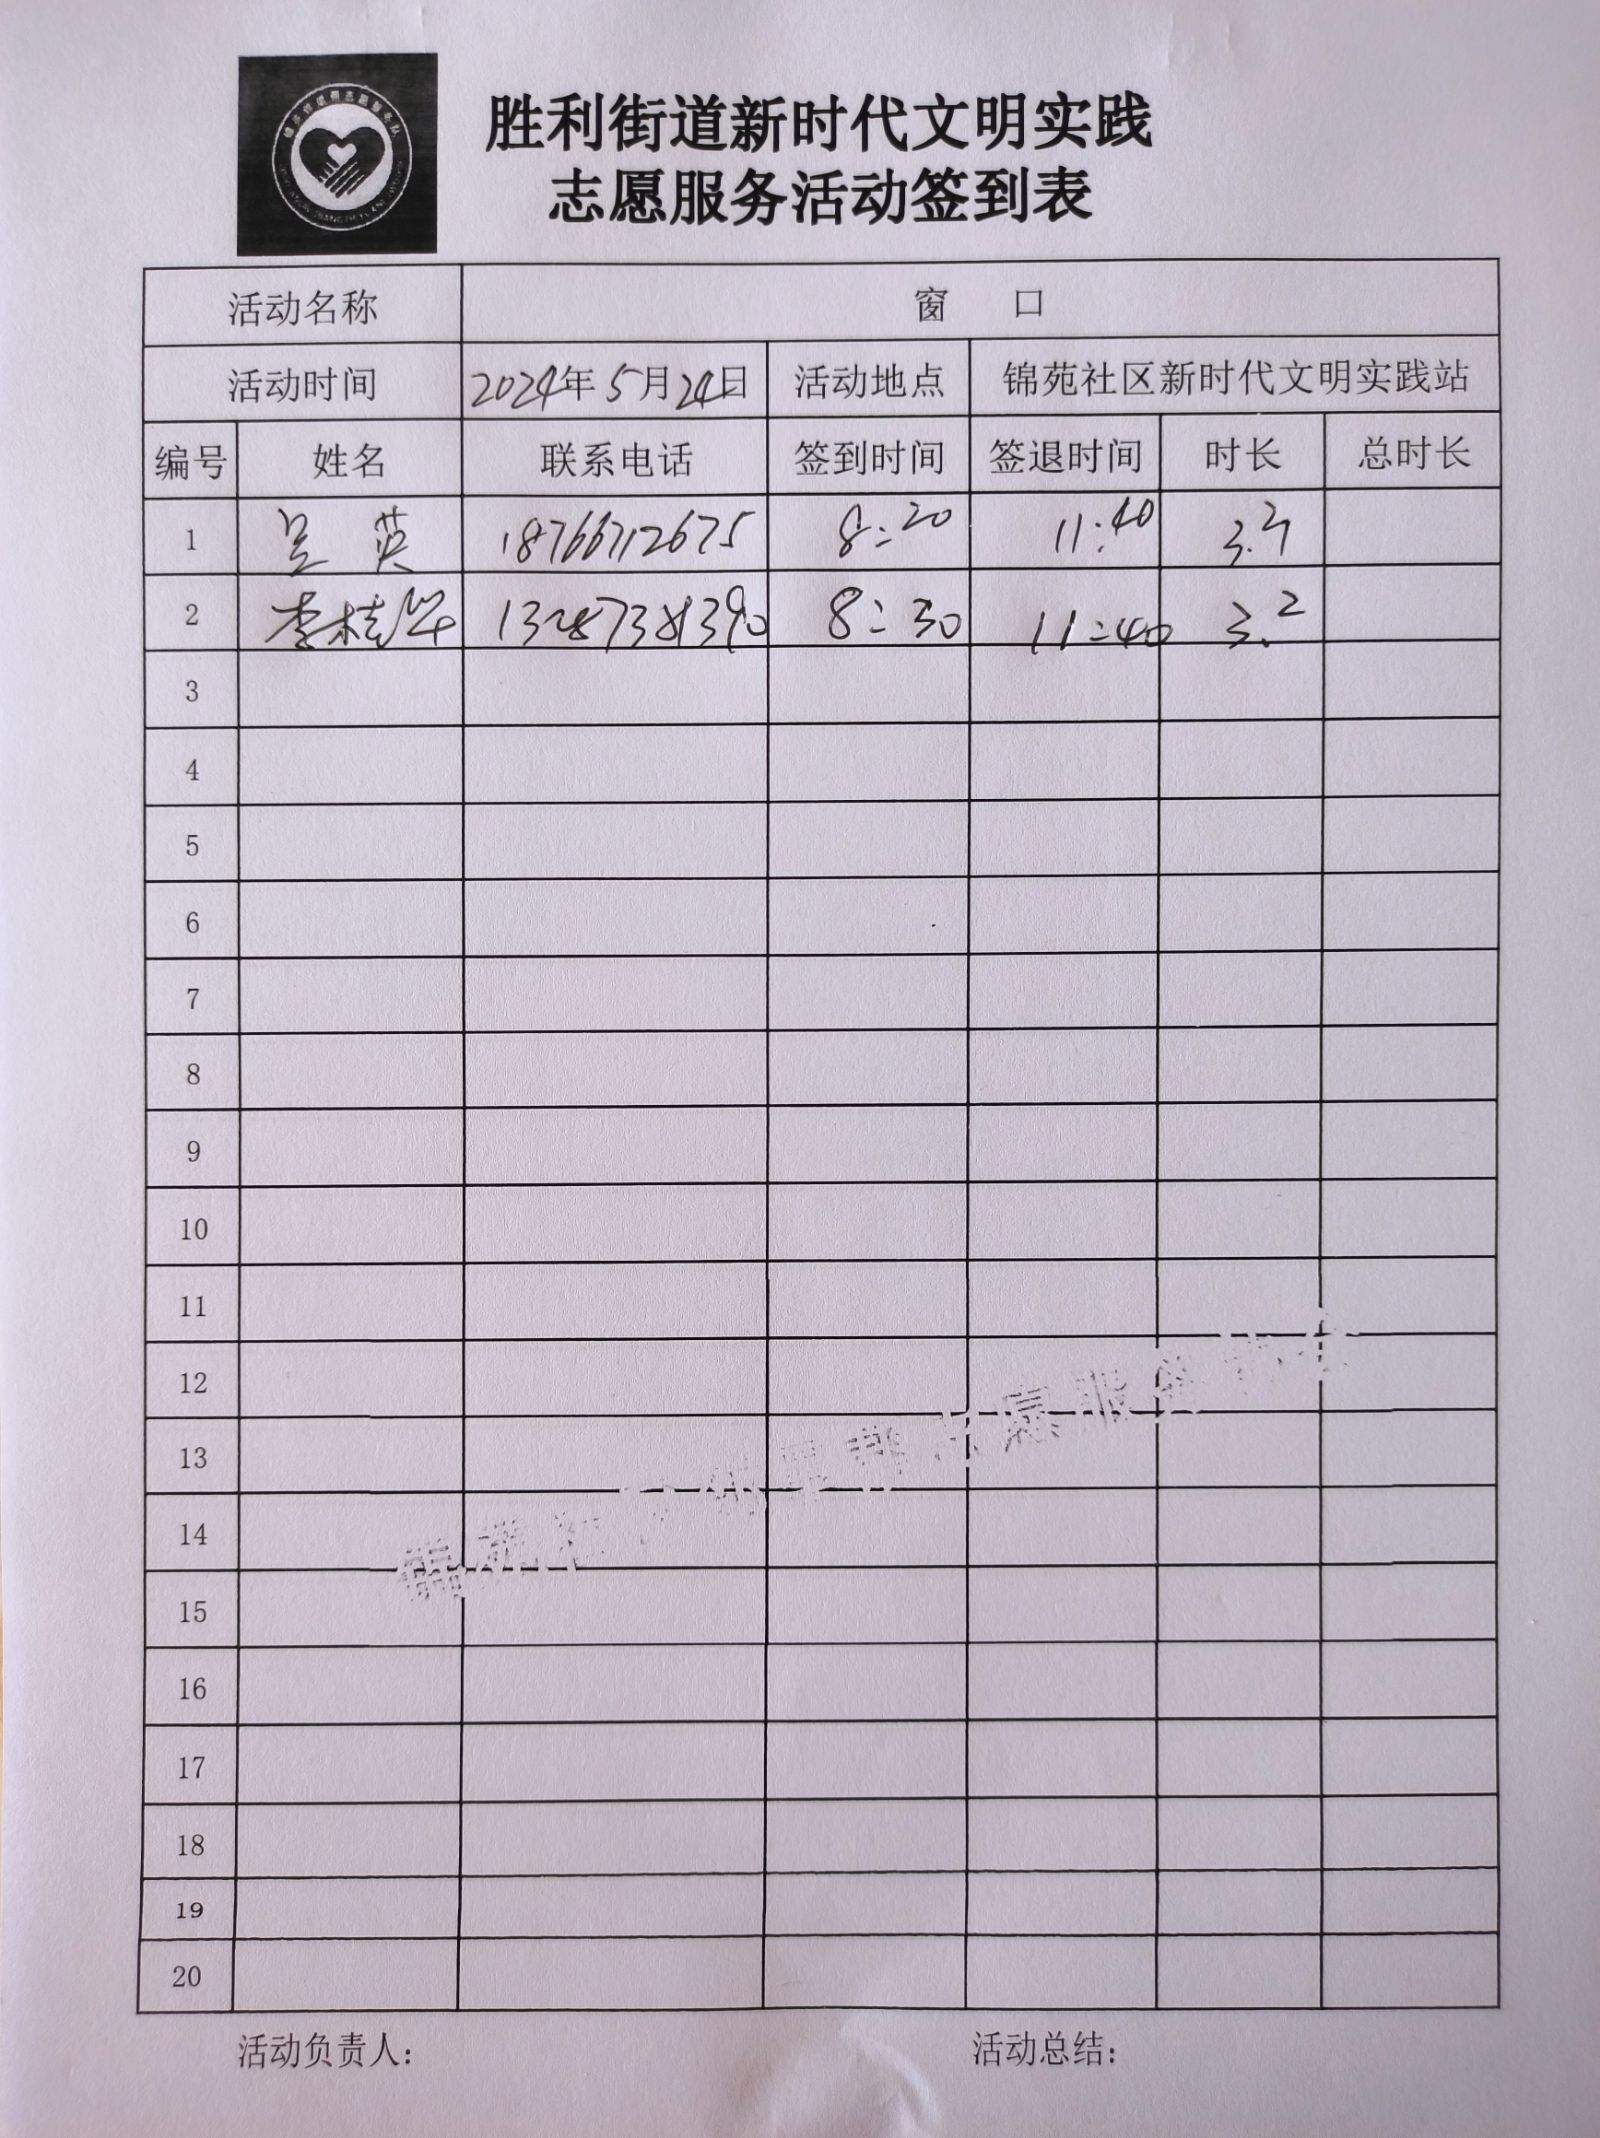 胜利街道新时代文明实践
志愿服务活动签到表
活动名称 窗 口
活动时间 2024年5月24日 活动地点 锦苑社区新时代文明实践站
编号 姓名 联系电话 签到时间 签退时间 时长 总时长
1 吴英 18766712675 8:20 11:40 3.3
2 李桂华 13287381390 8:30 11:40 3.2
3
4
5
6
7
8
9
10
11
12
13
14
15
16
17
18
19
20
活动负责人: 活动总结: